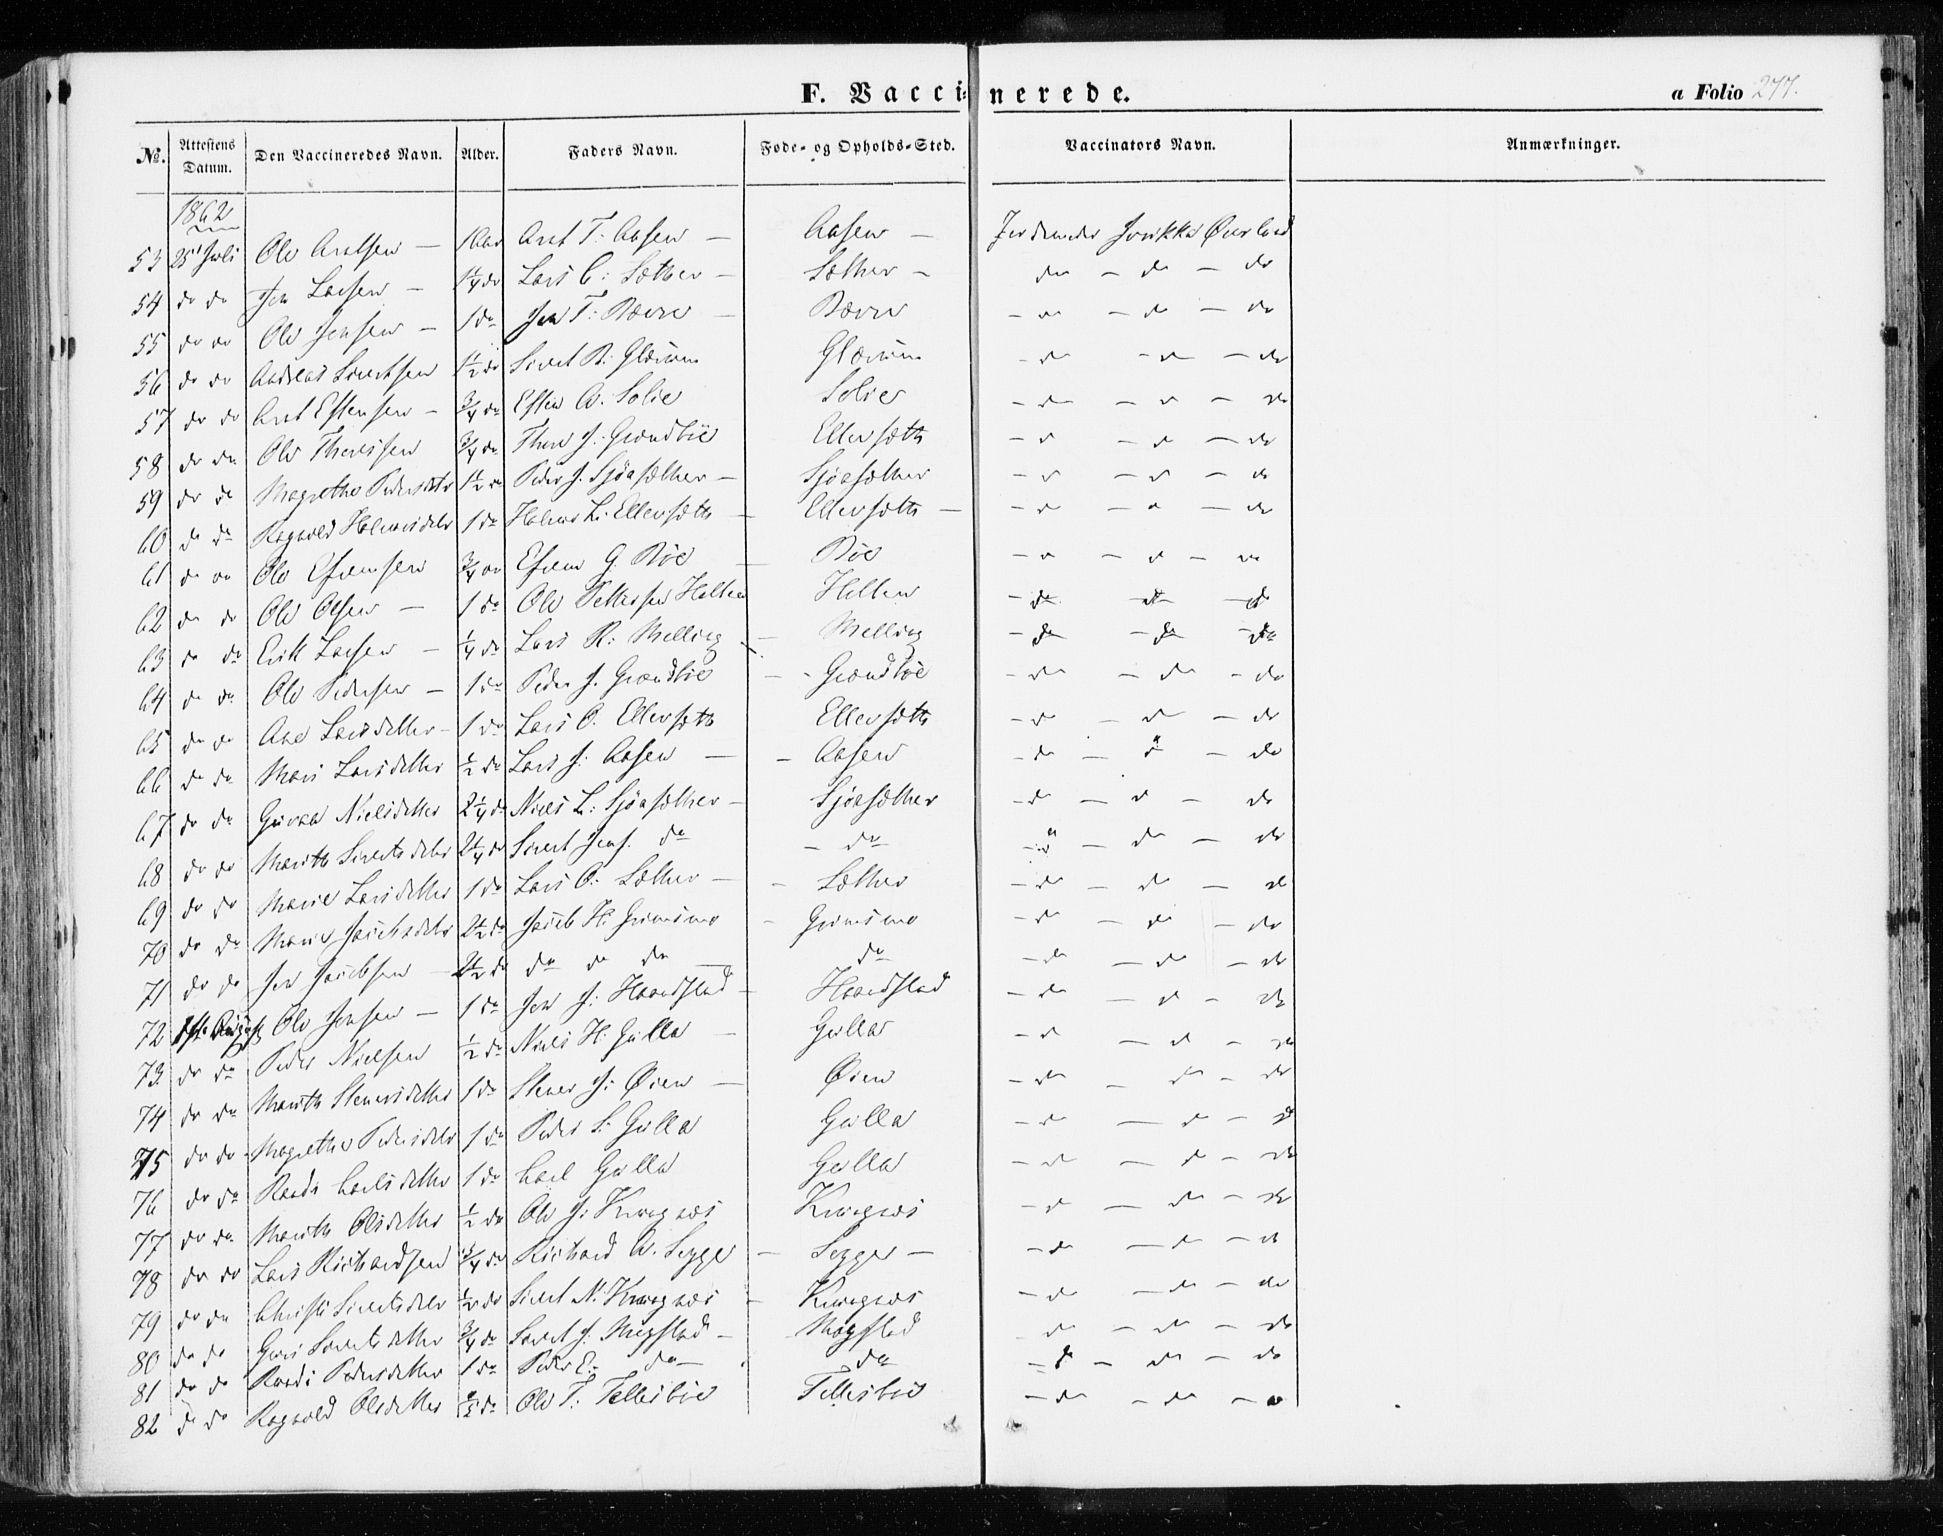 F. Vaccinerede.
a Folio 277.
No. Attestens Datum. Den Vaccineredes Navn. Alder. Faders Navn. Føde- og Opholds-Sted. Vaccinators Navn. Anmærkninger.
1862
53 25 Juli Ole Arntsen — 1 Aar Arnt T. Aasen — Aasen — Jordemoder Øverland
54 do do Jon Larsen — 1¼ do Lars C. Sæther — Sæther — do — do — do
55 do do Ole Jonsen — 1 do Jon T. Bævre — Bævre — do — do — do
56 do do Andreas Sivertsen 1½ do Sivert B. Glærum Glærum — do — do — do
57 do do Arnt Estensen — ¾ do Esten A. Solie Solie — do — do — do
58 do do Ole Thoresen ¾ do Thore J. Grændbøe Ellevsæth — do — do — do
59 do do Magrethe Pedersdtr 1½ do Peder J. Sjøasæther — Sjøasæther — do — do — do
60 do do Ragnild Halvorsdtr 1 do Halvor L. Ellevsæth — Ellevsæth — do — do — do
61 do do Ole Efremsen ¾ do Efrem G. Bøe — Bøe — do — do — do
62 do do Ole Olsen — 1 do Ole Pettersen Holten Holten — do — do — do
63 do do Erik Larsen — ¼ do Lars R. Melling — Melling — do — do — do
64 do do Ole Pedersen — 1 do Peder J. Grændbøe — Grændbøe — do — do — do
65 do do Ane Larsdatter — 1 do Lars O. Ellevsæth Ellevsæth — do — do — do
66 do do Mari Larsdatter ½ do Lars J. Aasen — Aasen — do — do — do
67 do do Guroe Nielsdatter 2¼ do Niels L. Sjøasæther — Sjøasæther — do — do — do
68 do do Marith Sivertsdtr 2¼ do Sivert Jons. do — do — do — do — do
69 do do Marie Larsdatter 1 do Lars O. Sæther — Sæther — do — do — do
70 do do Marie Jacobsdtr 2½ do Jacob H. Grimsmo — Grimsmo — do — do — do
71 do do Jon Jacobsen — 2½ do do do do — do — do — do — do
72 1ste August Ole Jonsen — 1 do Jon J. Haandstad — Haandstad — do — do — do
73 do do Peder Nielsen ½ do Niels H. Gulla — Gulla — do — do — do
74 do do Marith Stenersdatter 1 do Stener J. Øien — Øien — do — do — do
75 do do Magrethe Pedersdtr 1 do Peder S. Gulla Gulla — do — do — do
76 do do Randi Carlsdatter 1 do Carl Gulla Gulla — do — do — do
77 do do Marith Olsdatter ½ do Ole J. Krangnæs Krangnæs — do — do — do
78 do do Lars Richardsen ¾ do Richard A. Segge — Segge — do — do — do
79 do do Christi Sivertsdtr ½ do Sivert N. Krangnæs — Krangnæs — do — do — do
80 do do Guri Sivertsdatter ¾ do Sivert J. Mogstad — Mogstad — do — do — do
81 do do Randi Pedersdatter 1 do Peder E. do — do — do — do — do
82 do do Ragnild Olsdatter do Ole T. Tellesbøe Tellesbøe — do — do — do